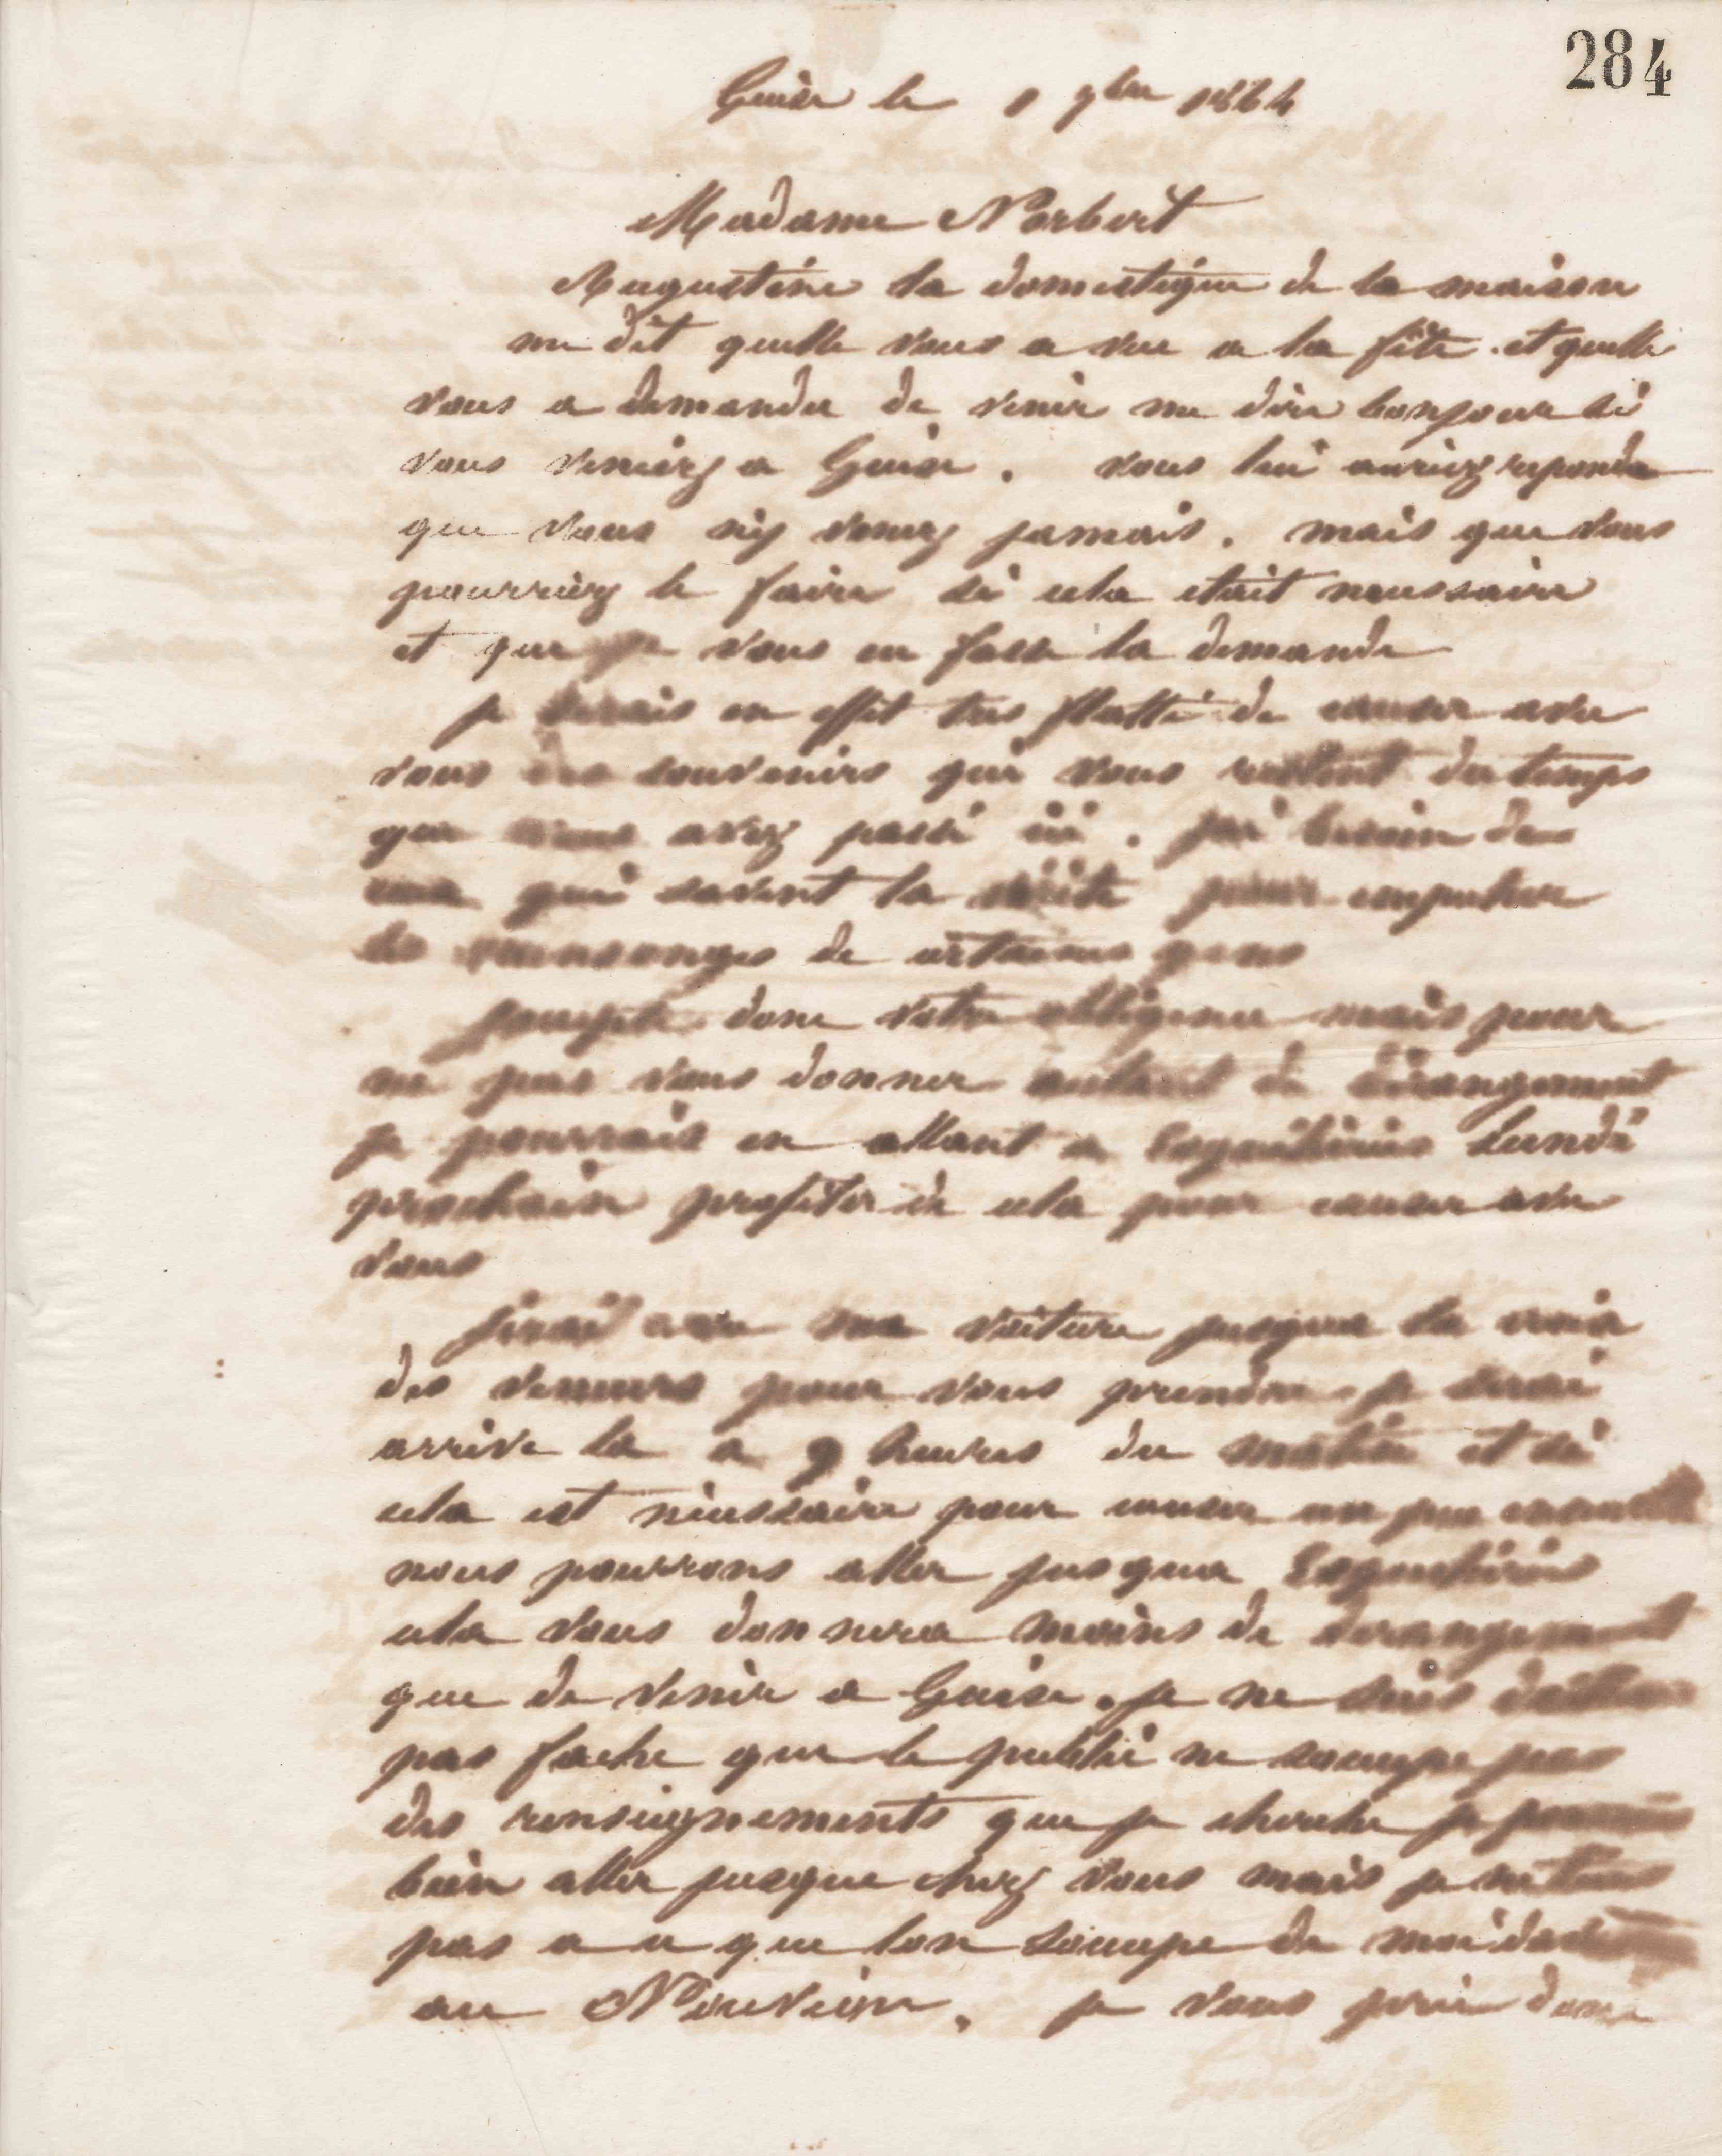 284
Guise le 1 9bre 1864
Madame Norbert
Augustine la domestique de la maison
me dit quelle vous a vue a la fête . et quelle
vous a demandee de venir me dire bonjour si
vous veniez a Guise . vous lui auriez repondu
que vous n'y venez jamais . mais que vous
pourriez le faire si cela etait necessaire
et que je vous en fasse la demande
je serais en effet tres flatté de causer avec
vous des souvenirs qui vous restent du temps
que vous avez passé ici . j'ai besoin de
ceux qui savent la vérité pour empecher
les mensonges de certaines gens
j'accepte donc votre obligence mais pour
ne pas vous donner autant de dérangement
je pourrais en allant a Esquéhéries Lundi
prochain profiter de cela pour causer avec
vous
j'irai avec ma voiture jusqua la croix
des veneurs pour vous prendre . je serai
arrive la a 9 heures du matin et si
cela est nécessaire pour causer un peu
nous pourrons aller jusqua Esquéhéries
cela vous donnera moins de derangement
que de venir a Guise . je ne suis d'ailleurs
pas fache que le public ne soccupe pas
des renseignements que je cherche je
bien aller jusque chez vous mais je ne tiens
pas a ce que lon soccupe de moi
au Nouvion . je vous prie donc